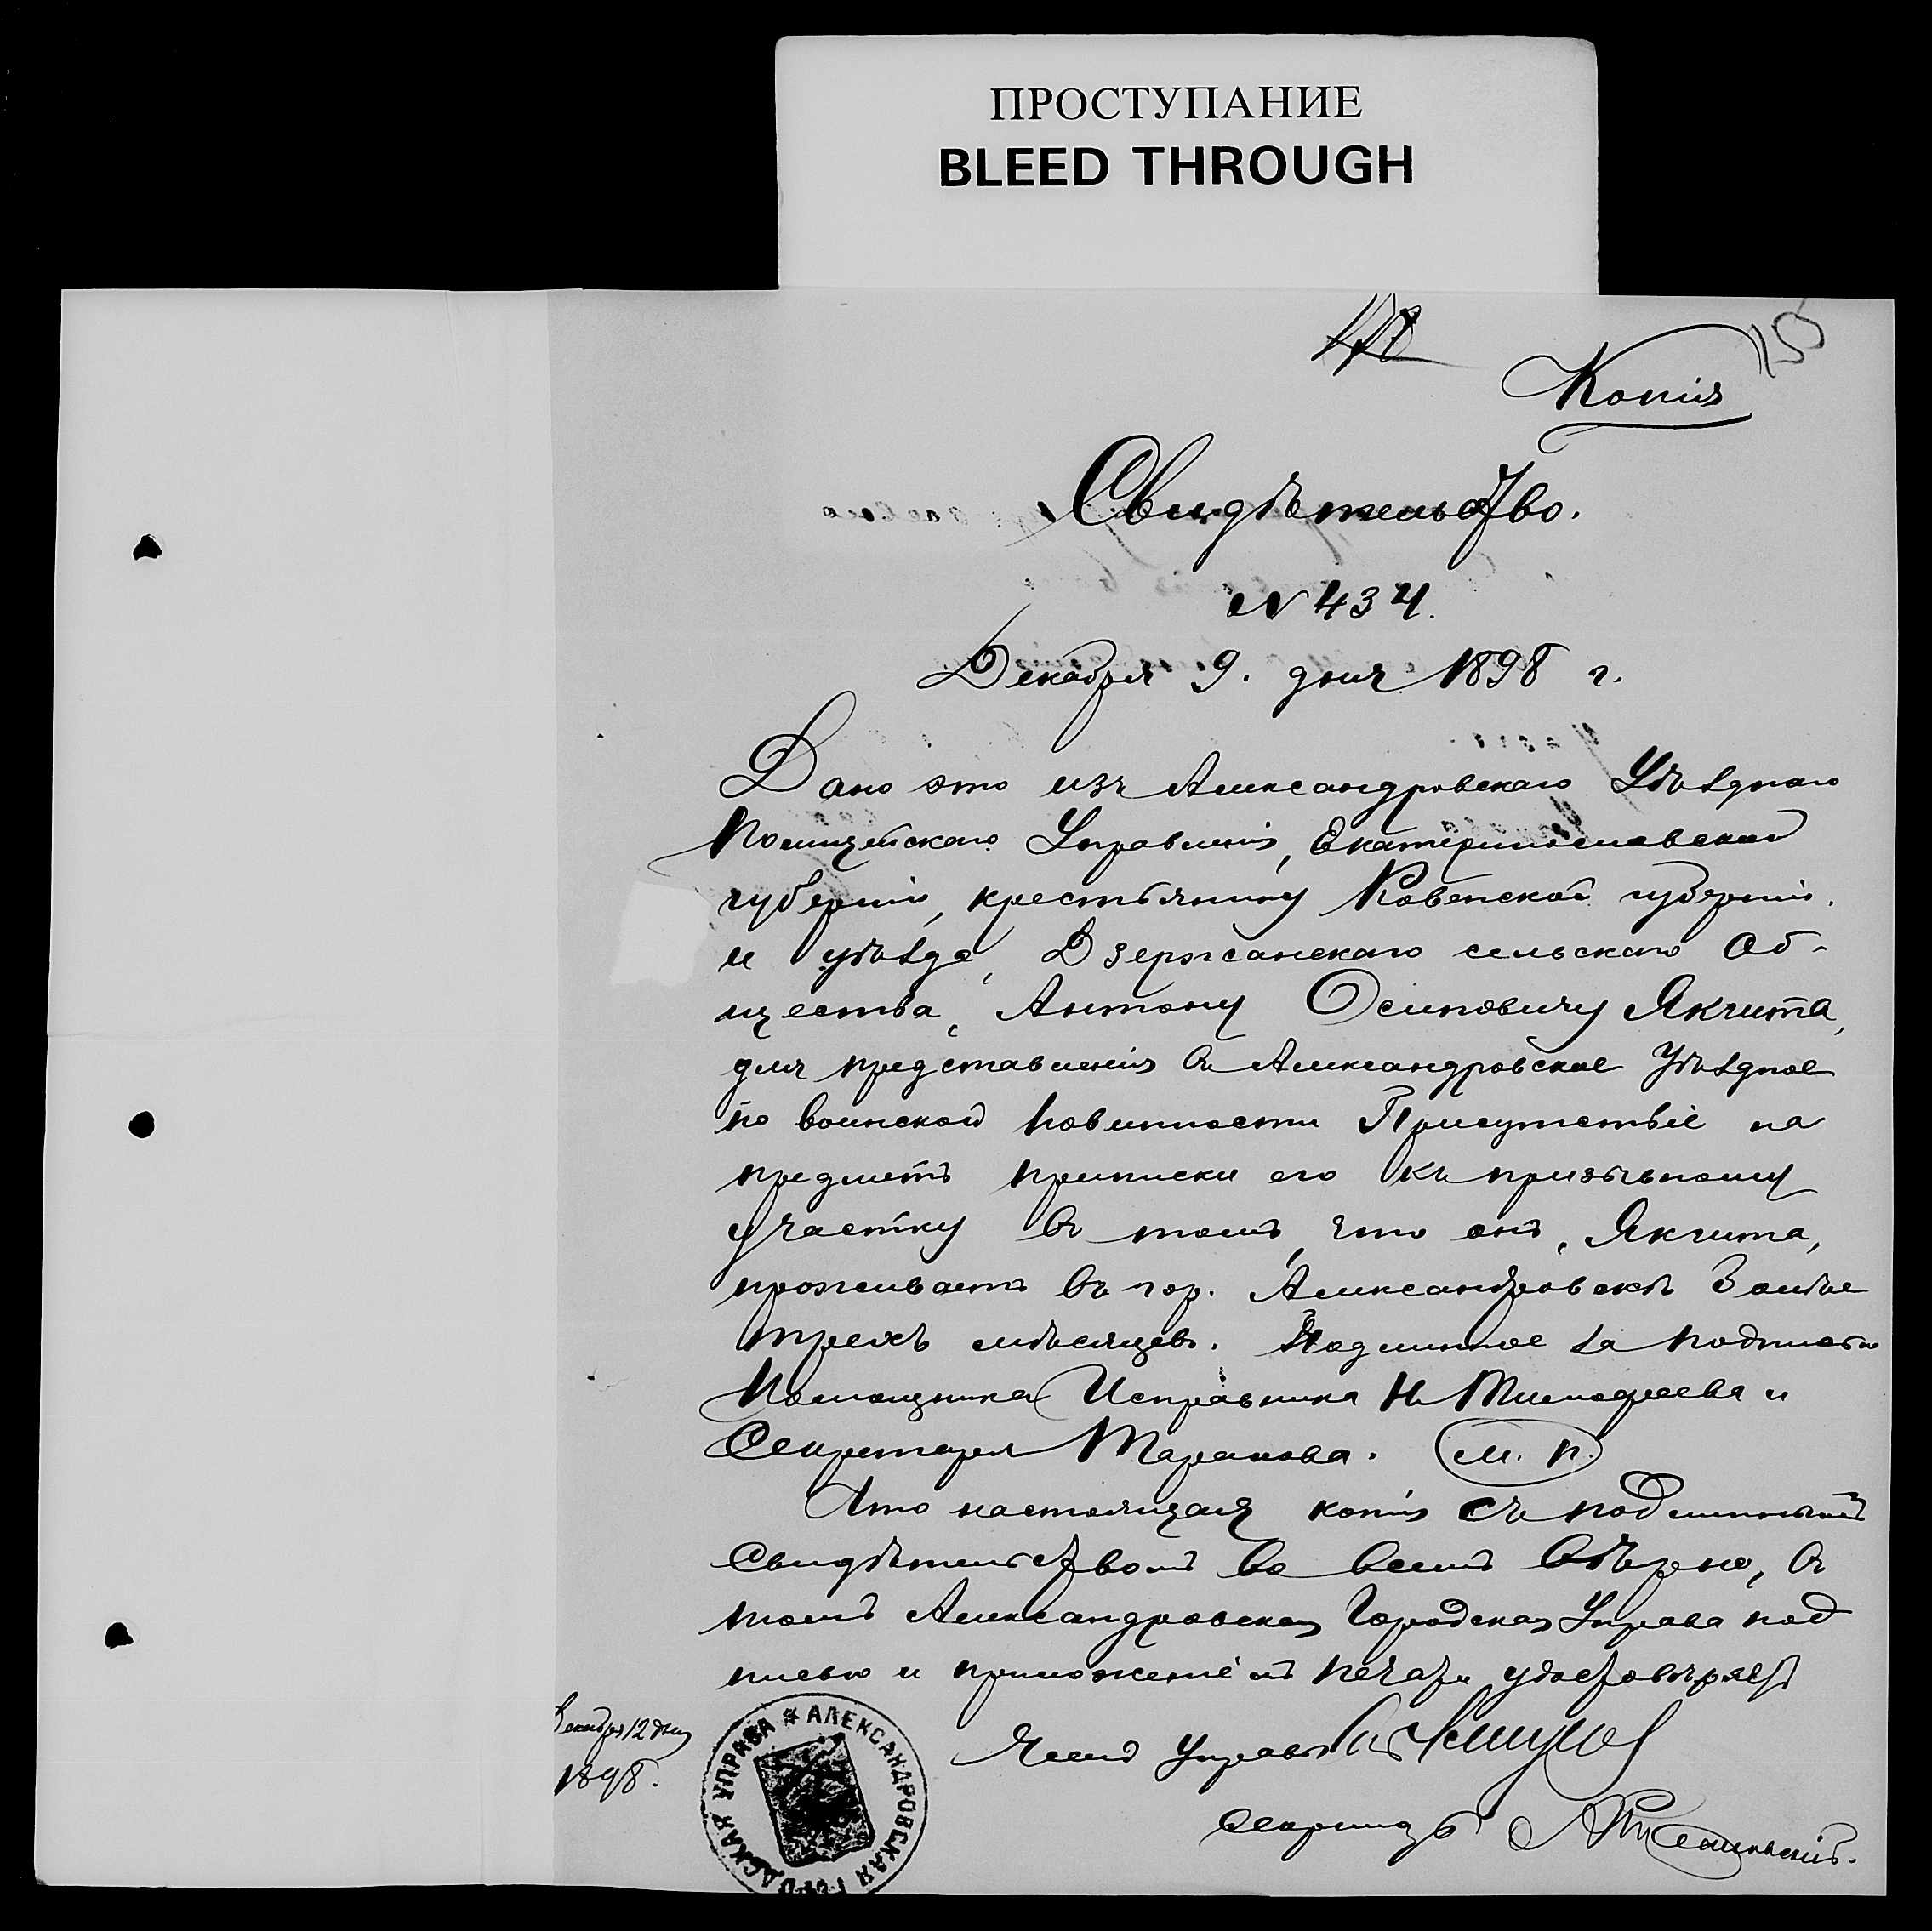 ПРОСТУПАНИЕ
BLEED THROUGH
155
Копія
Свидѣтельство.
№ 434.
Декабря 9. дня 1898 г.
Дано это изъ Александровскаго Уѣзднаго
Полицейскаго Управленія, Екатеринославской
губерніи, крестьянину Ковенской губерніи.
и уѣзда, Дзержанскаго сельскаго Об-
щества, Антону Осиповичу Якчита,
для представленія въ Александровское Уѣздное
по воинской повинности Присутствіе на
предметъ приписки его къ призывному
участку въ томъ, что онъ, Якчита,
проживаетъ въ гор. Александровскѣ болѣе
трехъ мѣсяцевъ. Подлинное за подписью
Помощника Исправника Н. Тимофеева и
Секретаря Таранова. М. П.
Что настоящая копія съ подлиннымъ
свидѣтельствомъ во всемъ вѣрно, въ
томъ Александровская Городская Управа под
писью и приложеніемъ печати удостовѣряетъ
Декабря 12 дня
1898.
Членъ Управы
Секретарь
АЛЕКСАНДРОВСКАЯ ГОРОДСКАЯ УПРАВА